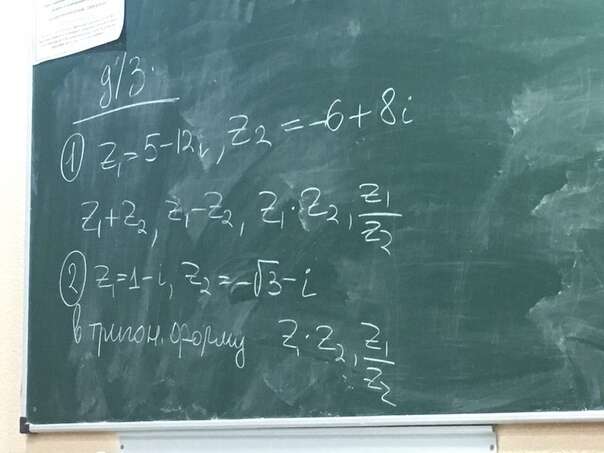 д/з.
① z₁=5-12i, z₂=-6+8i
z₁+z₂, z₁-z₂, z₁·z₂, z₁/z₂
② z₁=1-i, z₂=-√3-i
в тригон. форму z₁·z₂, z₁/z₂